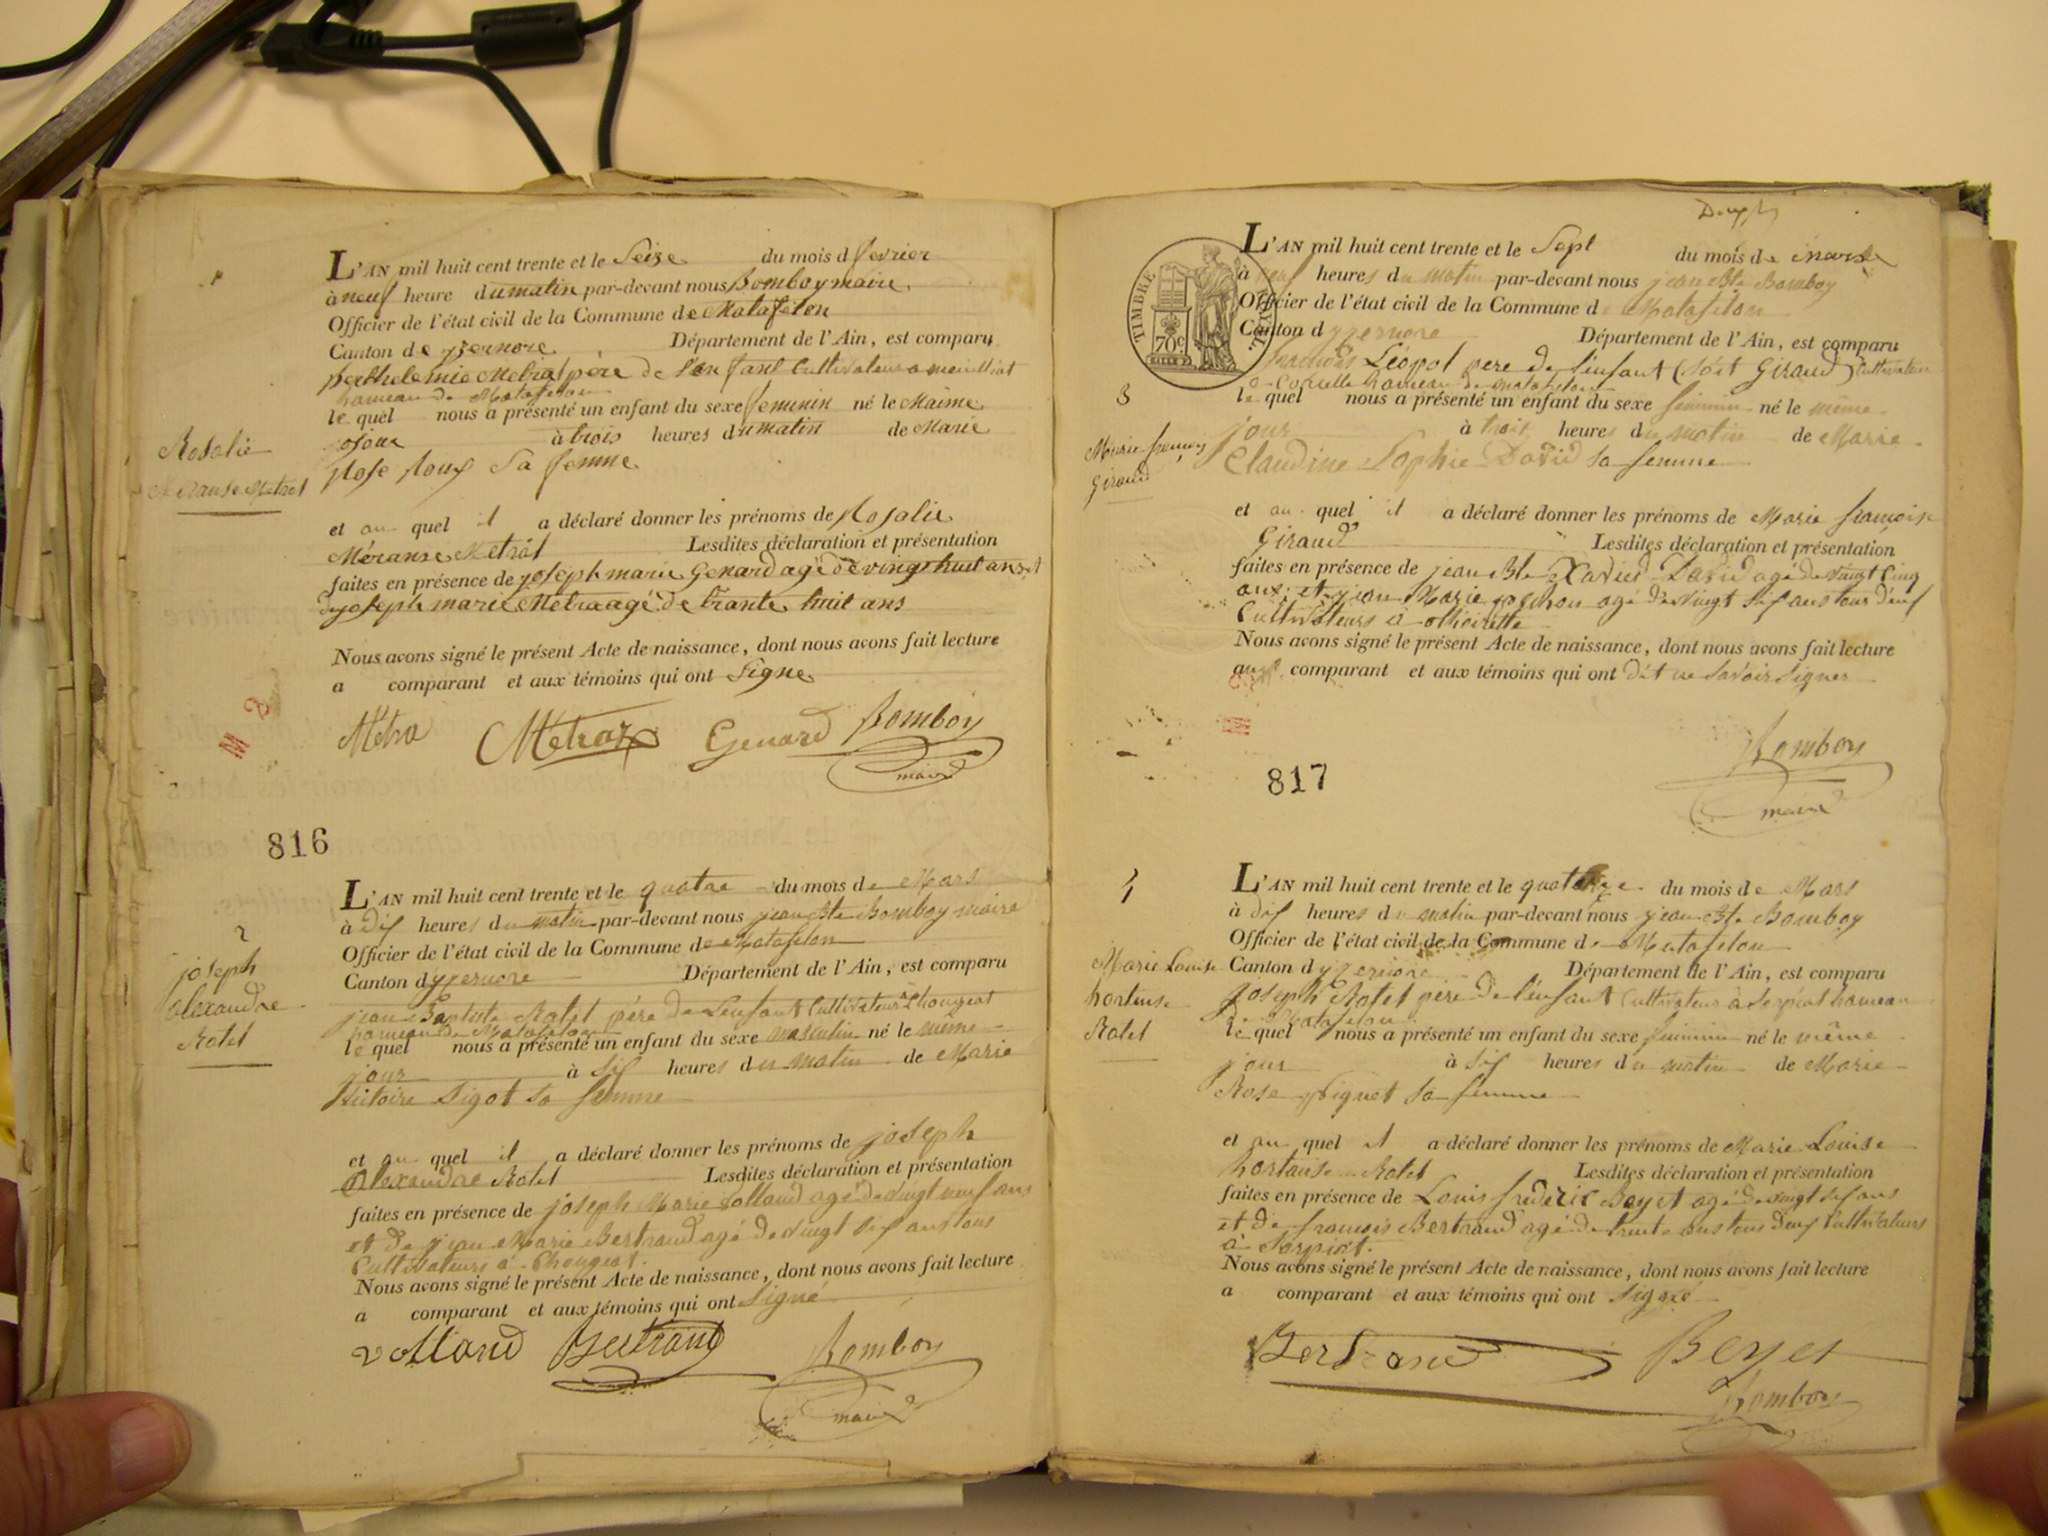 L'AN mil huit cent trente et le Seize du mois d fevrier
à neuf heure du matin par-devant nous Bomboy maire
Officier de l'état civil de la Commune de Matafelon
Canton de yzernore Département de l'Ain, est comparu
berthelemie Metrat père de l'en fant Cultivateur a
hameau de Matafelon
le quel nous a présenté un enfant du sexe feminin né le Maime
jour à trois heures du matin de Marie
Rose Roux Sa femme
Rosalie
Metrat
et au quel il a déclaré donner les prénoms de Rosalie
Méranse Metrat Lesdites déclaration et présentation
faites en présence de joseph marie Genard agé de vingt huit ans et
de joseph marie Metra agé de trante huit ans
Nous avons signé le présent Acte de naissance, dont nous avons fait lecture
a comparant et aux témoins qui ont Signe
Métra Metrat Genard Bomboy
maire
816
2
joseph
alexandre
Rolet
L'AN mil huit cent trente et le quatre du mois de Mars
à dix heures du matin par-devant nous jean Bte Bomboy maire
Officier de l'état civil de la Commune de Matafelon
Canton d yzernore Département de l'Ain, est comparu
jean Baptiste Rolet père de L'enfant Cultivateur à Chougeat
hameau de Matafelon
le quel nous a présenté un enfant du sexe masculin né le même
jour à six heures du matin de Marie
Victoire Sigot sa femme
et au quel il a déclaré donner les prénoms de joseph
Alexandre Rolet Lesdites déclaration et présentation
faites en présence de joseph Marie Volland agé de vingt neuf ans
et de jean Marie Bertrand agé de vingt six ans tous
Cultivateurs à Chougeat.
Nous avons signé le présent Acte de naissance, dont nous avons fait lecture
a comparant et aux témoins qui ont Signé
Volland Bertrand Bomboy
maire
L'AN mil huit cent trente et le Sept du mois de mars
à heures du matin par-devant nous jean Bte Bomboy
Officier de l'état civil de la Commune d Matafelon
Canton d yzernore Département de l'Ain, est comparu
TIMBRE ROYAL
70c
françois Léopol pere de l'enfant (dit Giraud) Cultivateur
hameau de matafelon
3
le quel nous a présenté un enfant du sexe feminin né le même
jour à trois heures du matin de Marie
Claudine Sophie David sa femme
Marie françoise
Giraud
et au quel il a déclaré donner les prénoms de Marie françoise
Giraud Lesdites déclaration et présentation
faites en présence de jean Bte Xavier David agé de vingt cinq
ans; et jean Marie agé de vingt six ans tous deux
Cultivateurs à
Nous avons signé le présent Acte de naissance, dont nous avons fait lecture
aux comparant et aux témoins qui ont dit ne savoir signer
Bomboy
maire
817
4
Marie Louise
hortense
Rolet
L'AN mil huit cent trente et le quatorze du mois de Mars
à dix heures du matin par-devant nous jean Bte Bomboy
Officier de l'état civil de la Commune de Matafelon
Canton d yzernore Département de l'Ain, est comparu
Joseph Rolet père de l'enfant Cultivateur à Serpiat hameau
de Matafelon
le quel nous a présenté un enfant du sexe feminin né le même
jour à six heures du matin de Marie
Rose sa femme
et au quel il a déclaré donner les prénoms de Marie Louise
hortense Rolet Lesdites déclaration et présentation
faites en présence de Louis frederic Beyet agé de vingt six ans
et de françois Bertrand agé de trente ans tous deux Cultivateurs
à Serpiat.
Nous avons signé le présent Acte de naissance, dont nous avons fait lecture
a comparant et aux témoins qui ont Signé
Bertrand Beyet
Bomboy